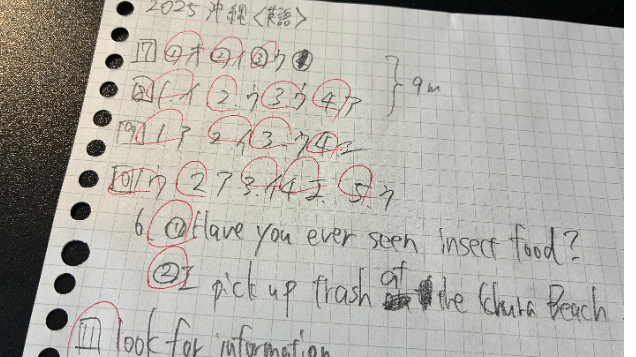 2025 沖縄<英語>
7 ①オ ②イ ③ウ
8 1.イ 2.ウ 3.ウ 4.ア } 9m
9 1.ア 2.イ 3.ウ 4.エ
10 1.ウ 2.ア 3.イ 4.エ 5.ウ
6. ①Have you ever seen insect food?
②I pick up trash at the Chura Beach
11 look for information